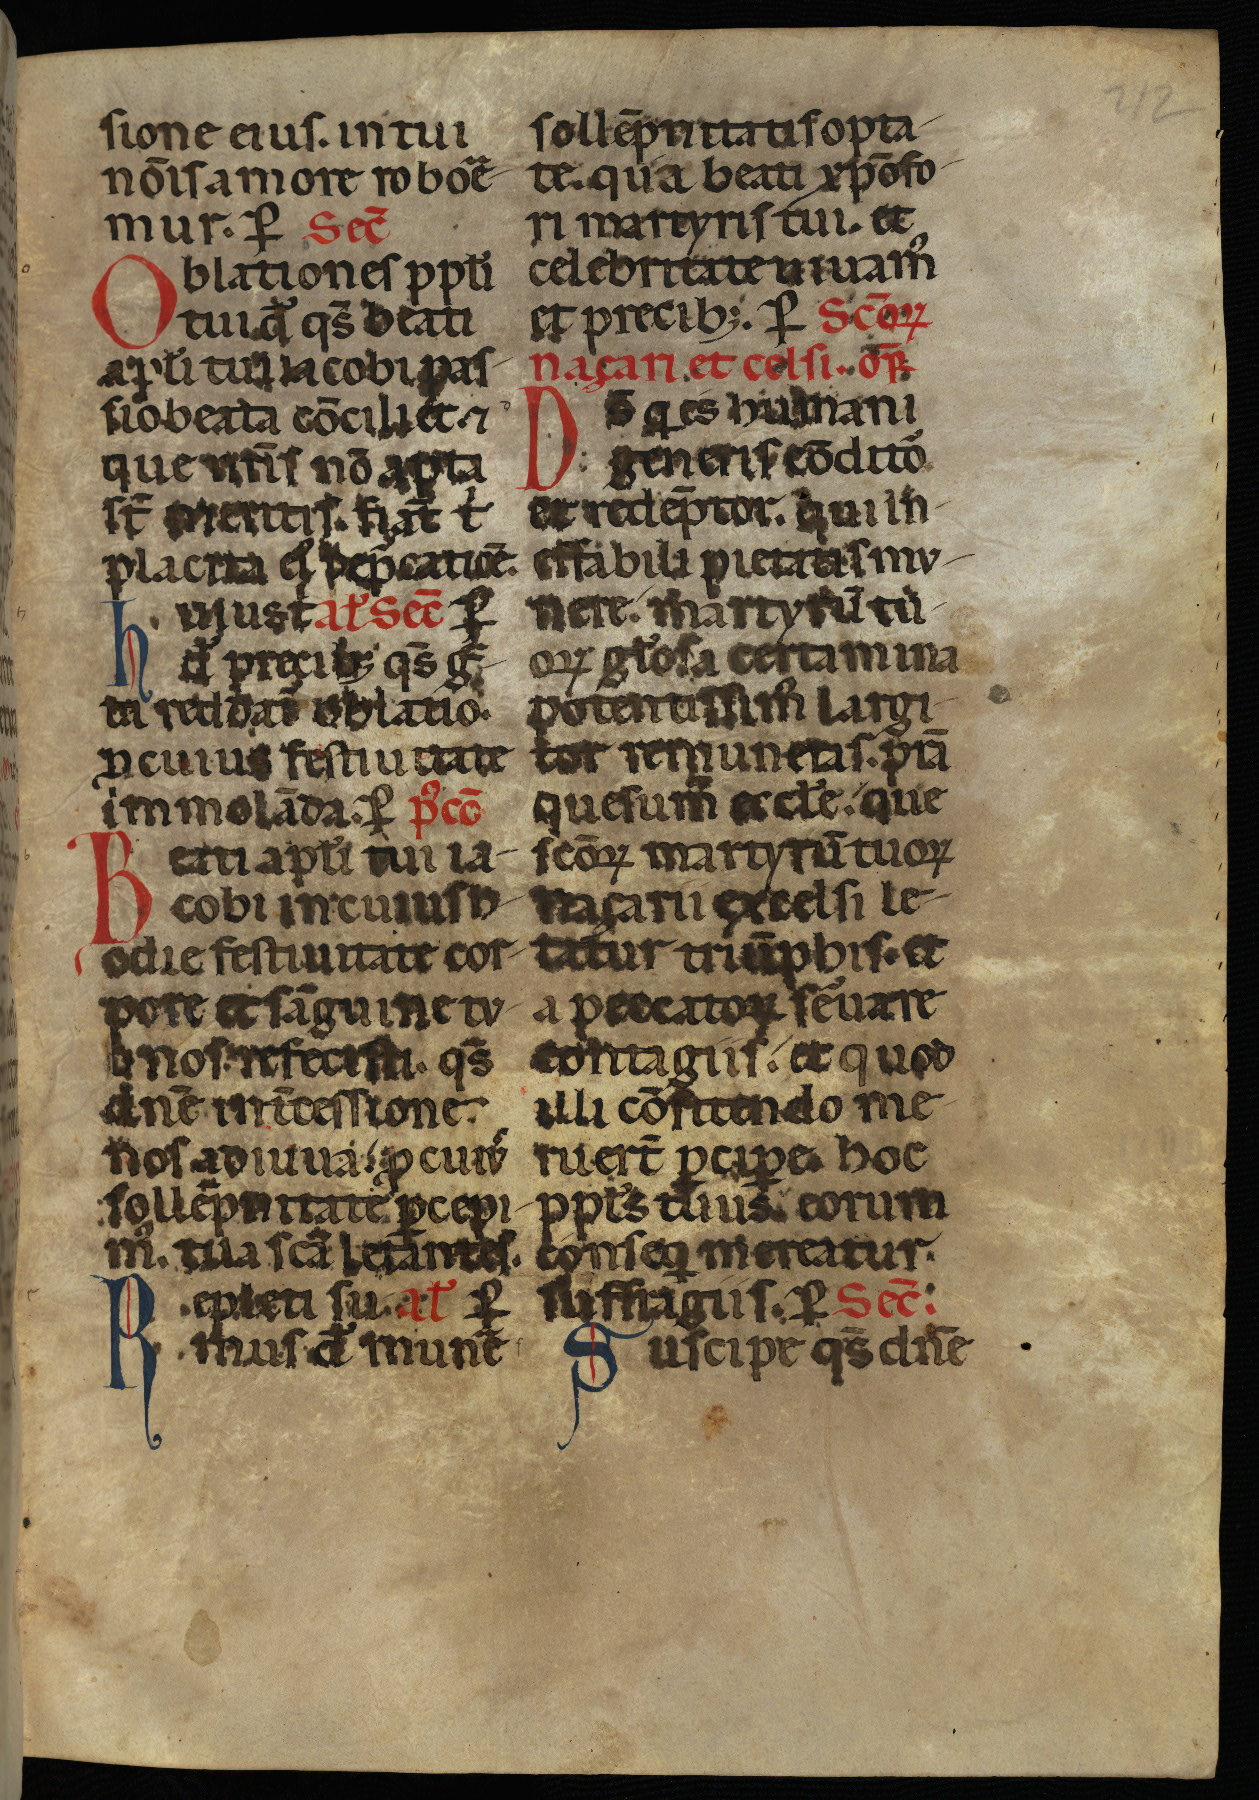 sione eius. in tui
nōis amore roborē
mur. ꝑ Sec̄
Oblationes ppłi
tui d̄ qs̄ beati
apłi tui iacobi pas
sio beata cōciliet. ⁊
que nr̄is nō apta
st̄ meritis. fiāt t'
placita ei' dep̄catiōe.
hujus t ał Sec̄ ꝑ
d̄ precib; qs̄ gͣ
ta reddat' oblatio.
ꝓ cuius festiuitate
immolāda. ꝑ p'cō
Beati apłi tui ia
cobi in cuius h
odie festiuitate cor
pore et sāguine tu
o nos refecisti. qs̄
dn̄e int̄cessione.
nos adiuua. ꝓ cui'
sollēpnitate ꝑcepi
m'. tua scā letantes.
Repleti su ał ꝑ
mus d̄ munē
sollēpnitatis opta
te. qua beati xp̄ofo
ri martyris tui. et
celebritate iuuam'
et precib;. ꝑ Scōꝝ
naçari et celsi. or̄
Ds̄ q es humani
generis cōdito
et redēptor. qui in
effabili pietatis mu
nere. martyrū tu
oꝝ głosa certamina
potentissim' largi
tor remuneras. pr̄a
quesum' ecclē. que
scōꝝ martyrū tuoꝝ
naçarii et celsi le
tatur triūphis. et
a peccatoꝝ seruare
contagiis. et quod
illi cōfitendo me
ruert̄ ꝑcipe. hoc
ppłs tuus. eorum
conseq mereatur.
suffragiis. ꝑ Sec̄:
Suscipe qs̄ dn̄e
242